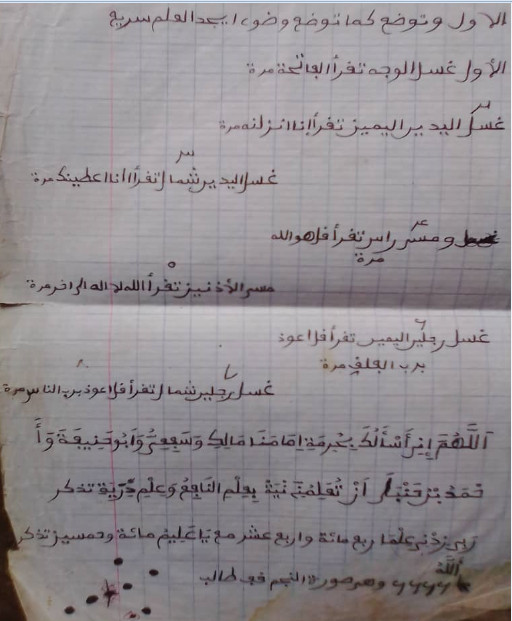 الاول وتوضع كما توضع وضوء ايجد العلم سريع
الأول غسل الوجه تفرأ الفاتحة مرة
غسل اليدير اليميز تفرأ إنا انزلنه مرة
غسل اليدير شمال تفرأ أنا اعطينك مرة
ومسح راس تفرأ فل هو الله
مرة
مسح الأذنيز تفرأ الله لا اله الى اخر مرة
غسل رجلير اليميں تفرأ فل اعوذ
برب الفلف مرة
غسل رجلير شمال تفرأ فل اعوذ برب الناس مرة
اَللَّهُمَ إِنِي أَسْأَلُكَ بِحُرمَةِ إِمَامَنَا مَالِكِ وَ سَفِعِيُّ وَ اَبُو حَنِيفَةَ وَ أَ
حْمَدُ بْن حَنْبَل اَنْ تُعَلِمْنِي نَيَةُ بِعِلْمِ النَّافِعُ وَعِلْمِ تذكر
رَبِي زِدْنِي عِلْمًا ربع مائة واربع عشر مع يَا عَلِيمُ مائة وخمسيز تذكر
اللَّهُ
وهر صورة النجم في طالب